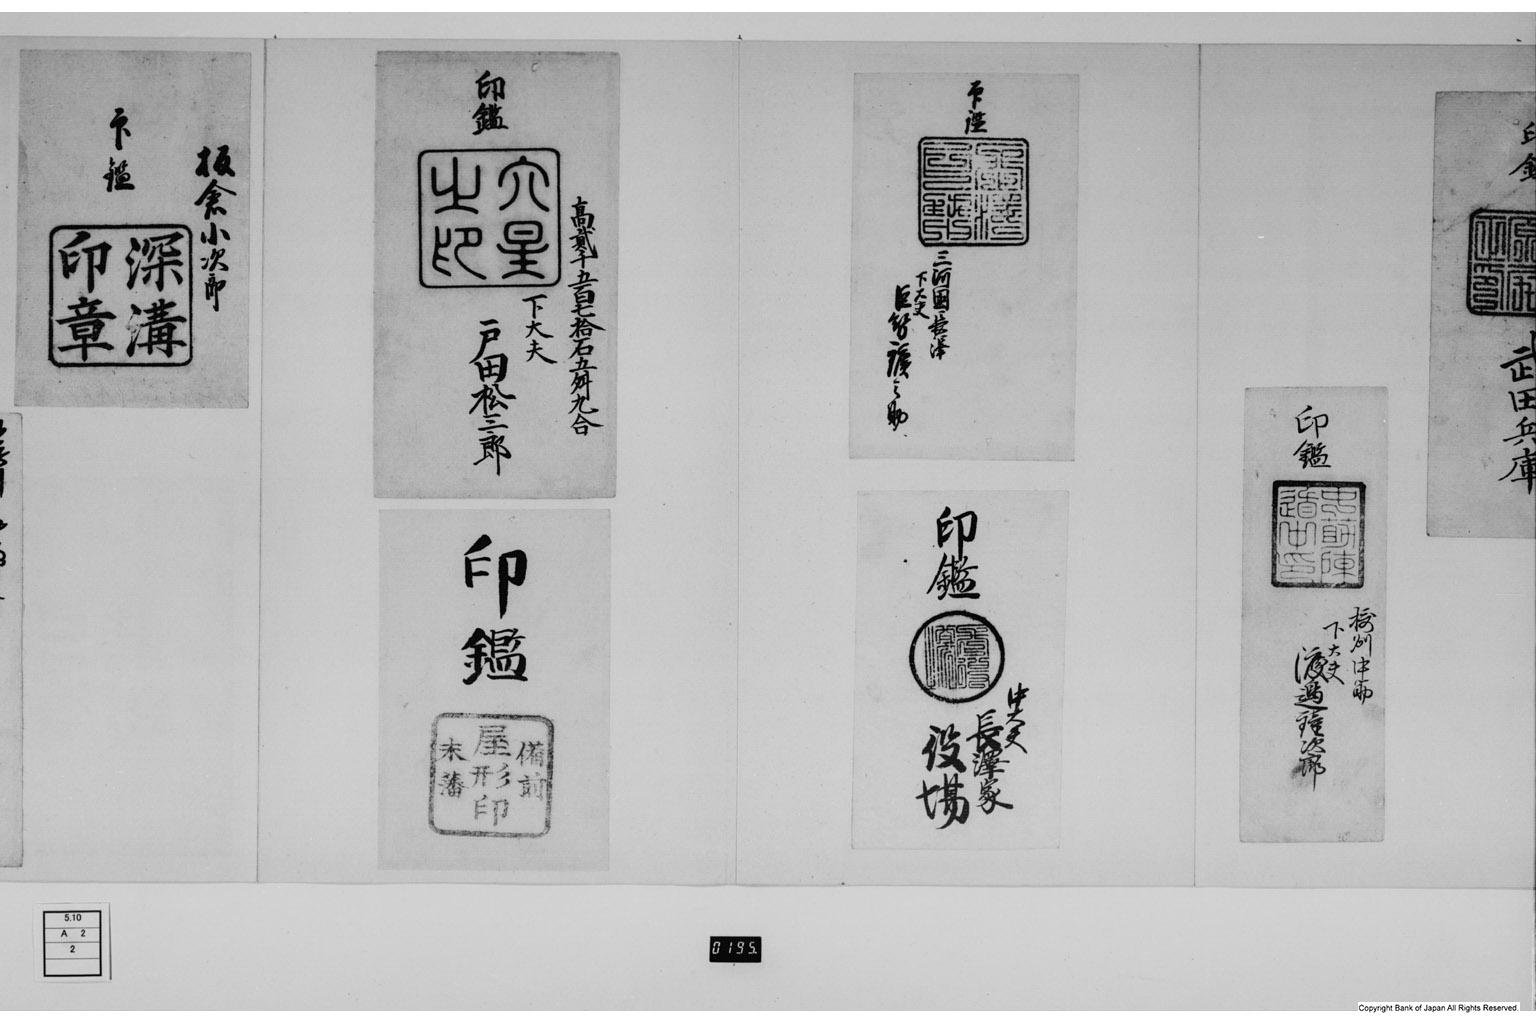 印鑑
武田兵庫
印鑑
下大夫
渡邉
次郎
印鑑
三河國長澤
下大夫
之助
印鑑
中大夫
長澤家
役場
印鑑
六星
之印
高貳千五百七拾石五舛九合
下大夫
戸田松三郎
印鑑
備前
屋形印
末藩
板倉小次郎
印鑑
深溝
印章
5.10
A 2
2
0195.
Copyright Bank of Japan All Rights Reserved.